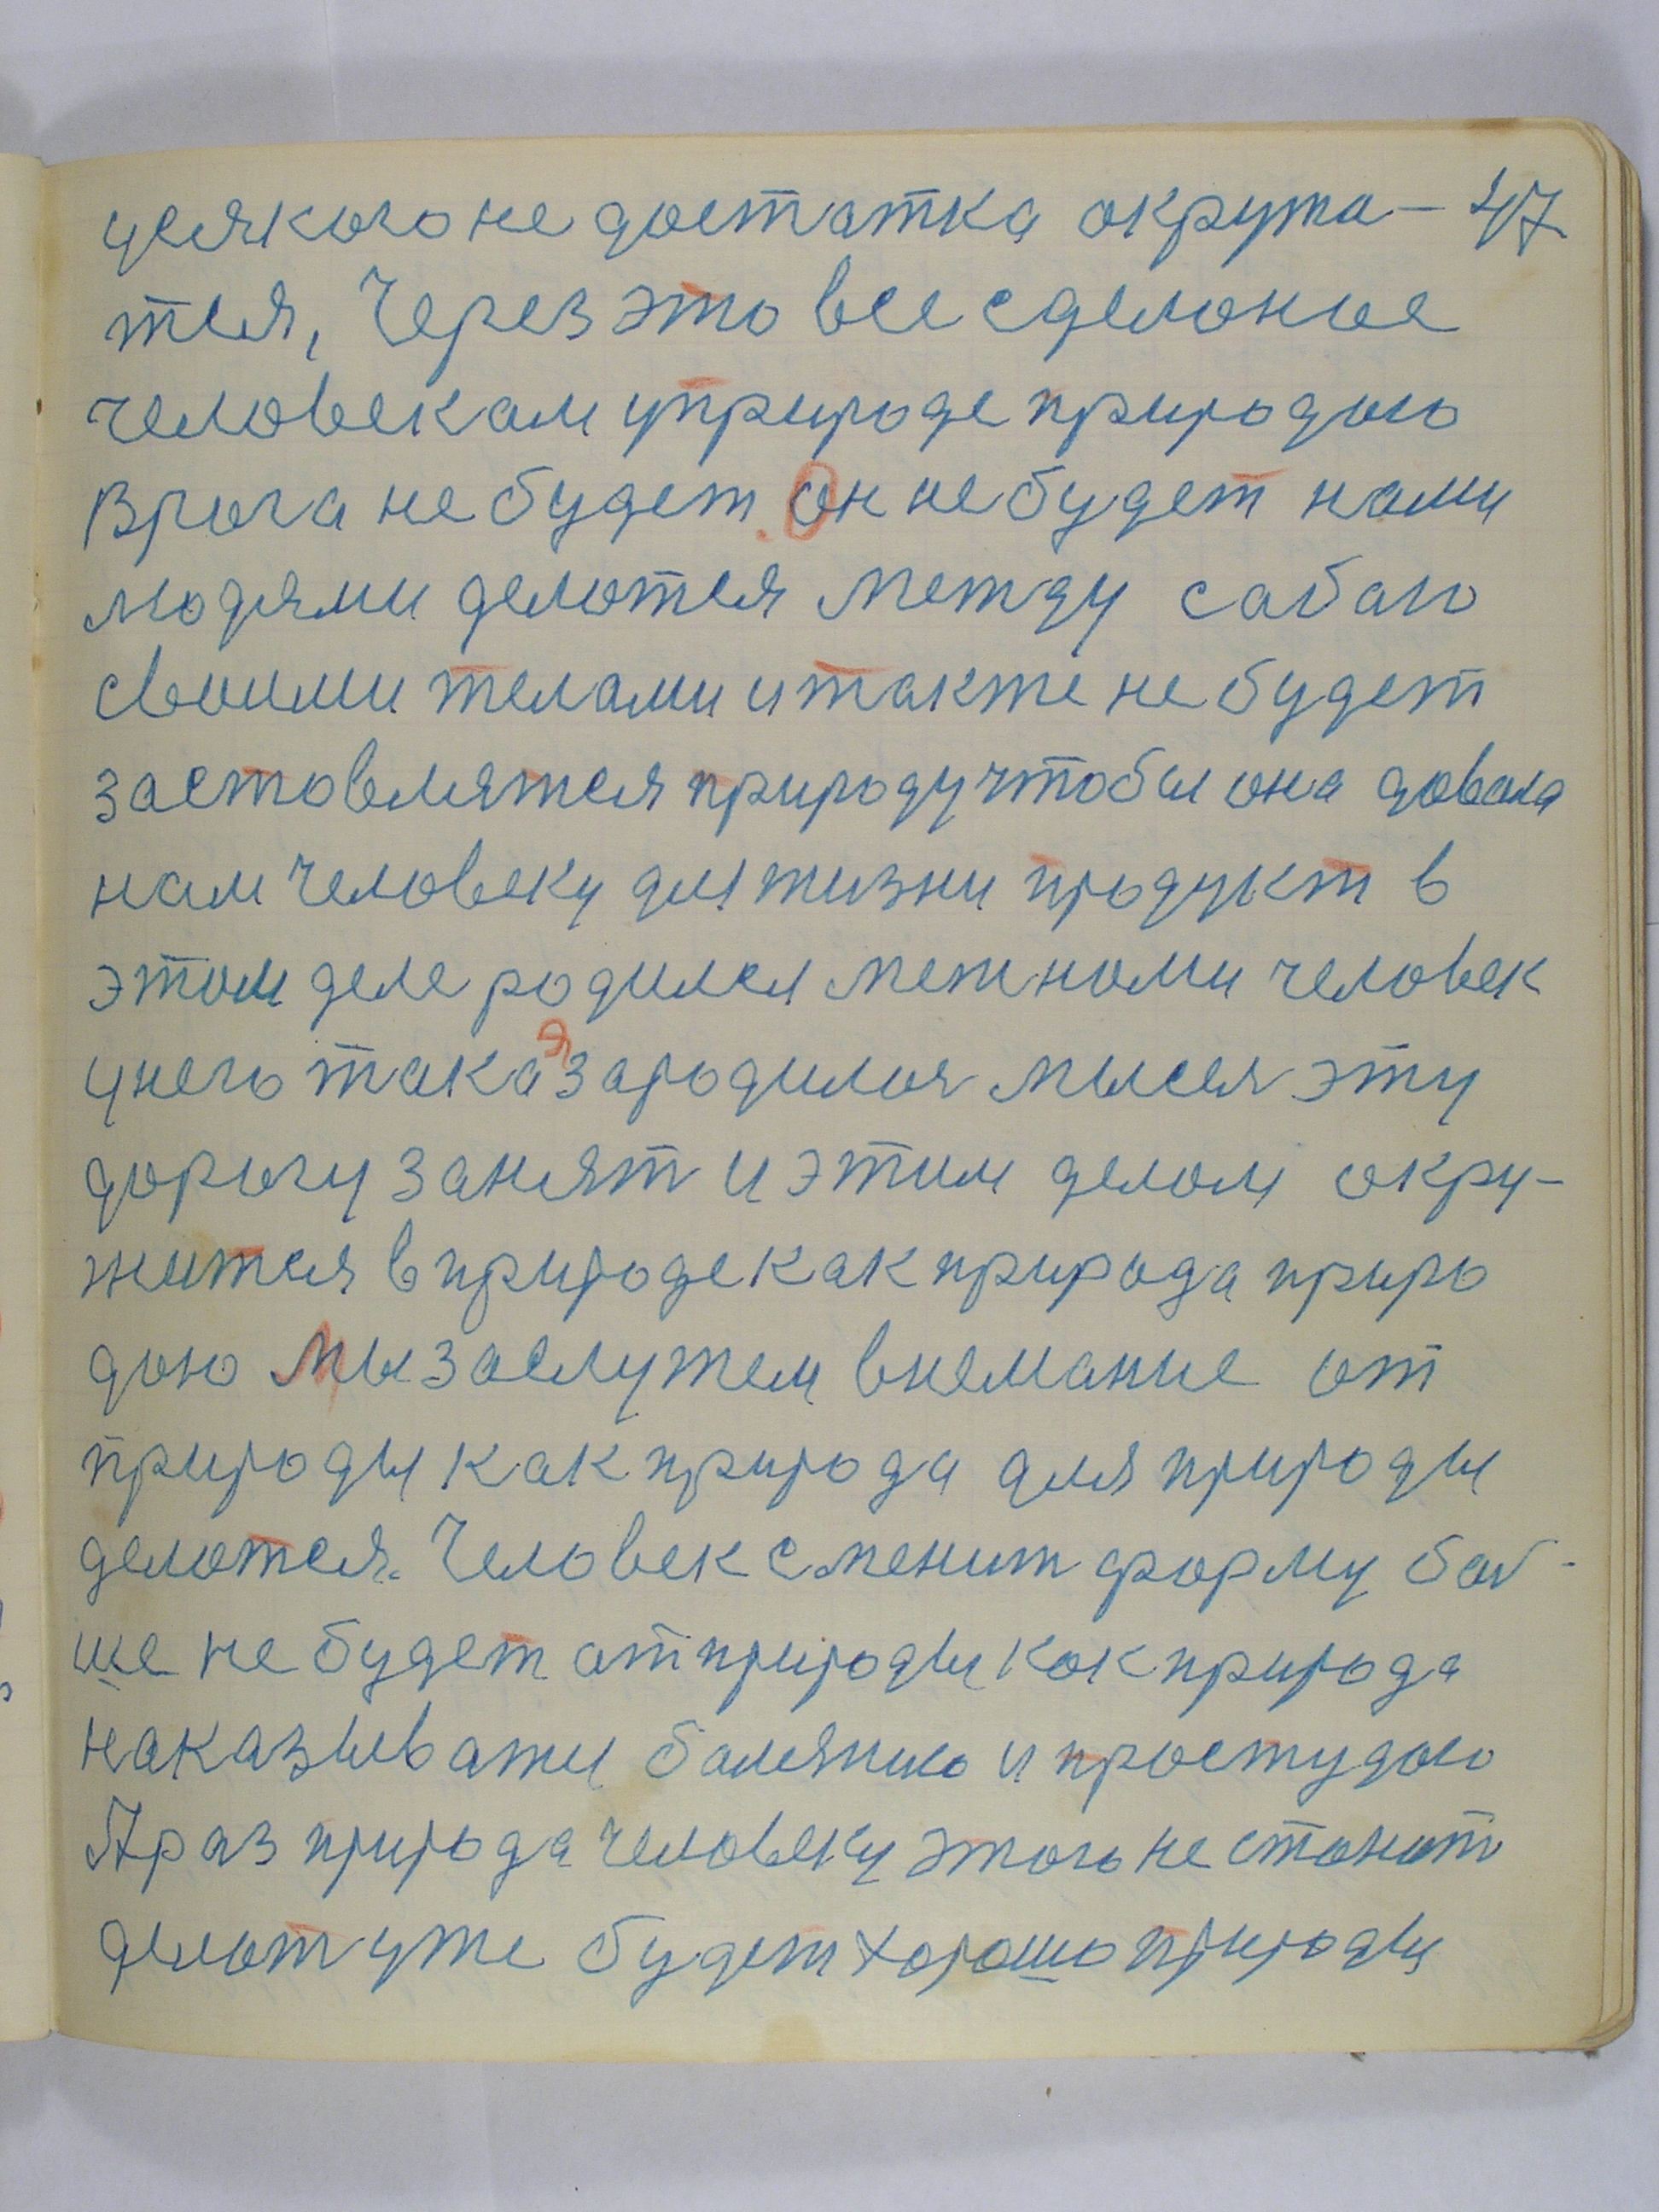 усякого не достатка окружа- 47
тся, Через это все сделоное
человекам уприроде природою
Врага не будет. Он не будет нами
людями делотся между сабаю
своими телами и также не будет
застовлятся природу чтобы она довала
нам человеку для жизни продукт в
этом деле родился меж номи человек
унего такая зародилоя мысля эту
дорогу занят и этим делом окру-
жится в природе как природа приро
дою Мы заслужем внемание от
природы как природа для природы
делотся. Человек сменит форму бол-
ше не будет от природы как природа
наказывати болятию и простудою
А раз природа человеку этого не станит
делот уже будет хорошо природы